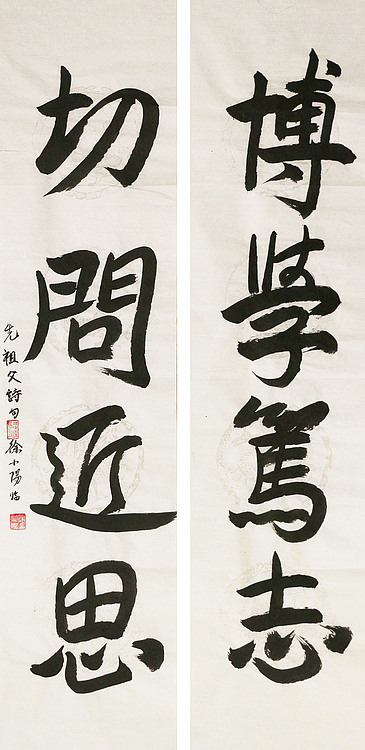 博學篤志
切問近思
先祖父詩句
徐小陽臨